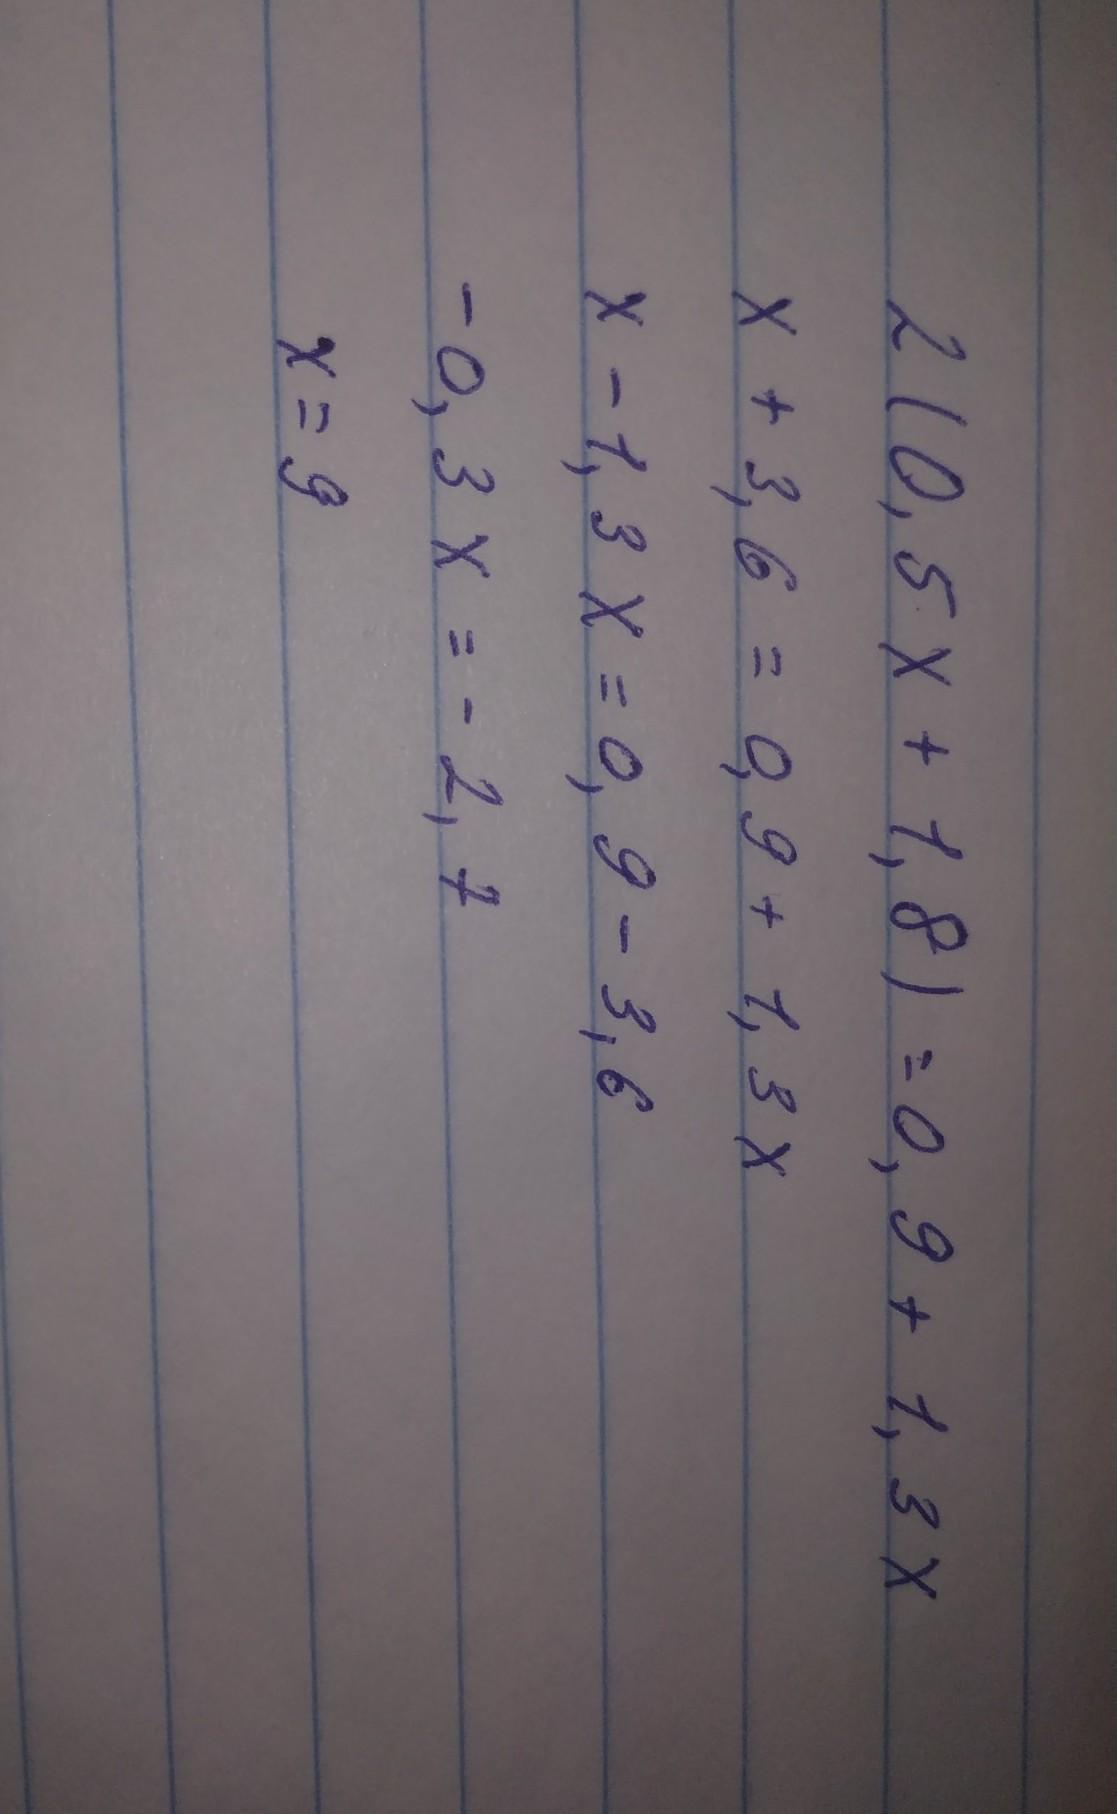 2(0,5x+1,8)=0,9+1,3x
x+3,6=0,9+1,3x
x-1,3x=0,9-3,6
-0,3x=-2,7
x=9